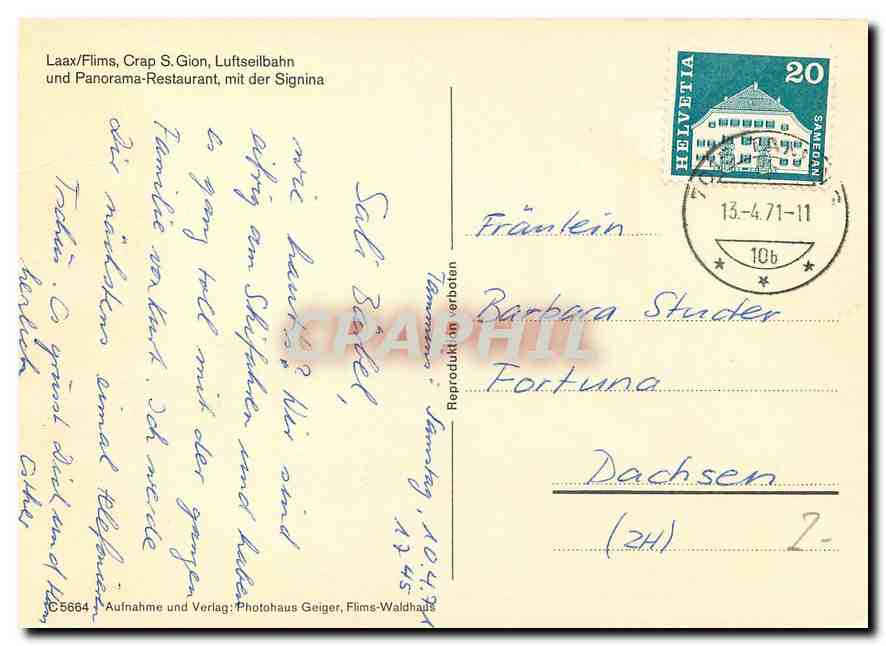 Laax/Flims, Crap S. Gion, Luftseilbahn
und Panorama-Restaurant, mit der Signina
Tamins: Samstag, 10.4.71
1745
Sali Bäbel,
wie haut's? Wir sind
eifrig am Skifahren und haben
es ganz toll mit der ganzen
Familie von Kurt. Ich werde
Dir nächstens einmal telefonieren
Tschüss. Es grüsst Dich und
herzlich Esther
C 5664 Aufnahme und Verlag: Photohaus Geiger, Flims-Waldhaus
Reproduktion verboten
HELVETIA
20
SAMEDAN
13.-4.71-11
10b
Fräulein
Barbara Studer
Fortuna
Dachsen
(ZH)
2.-
CPAPHIL